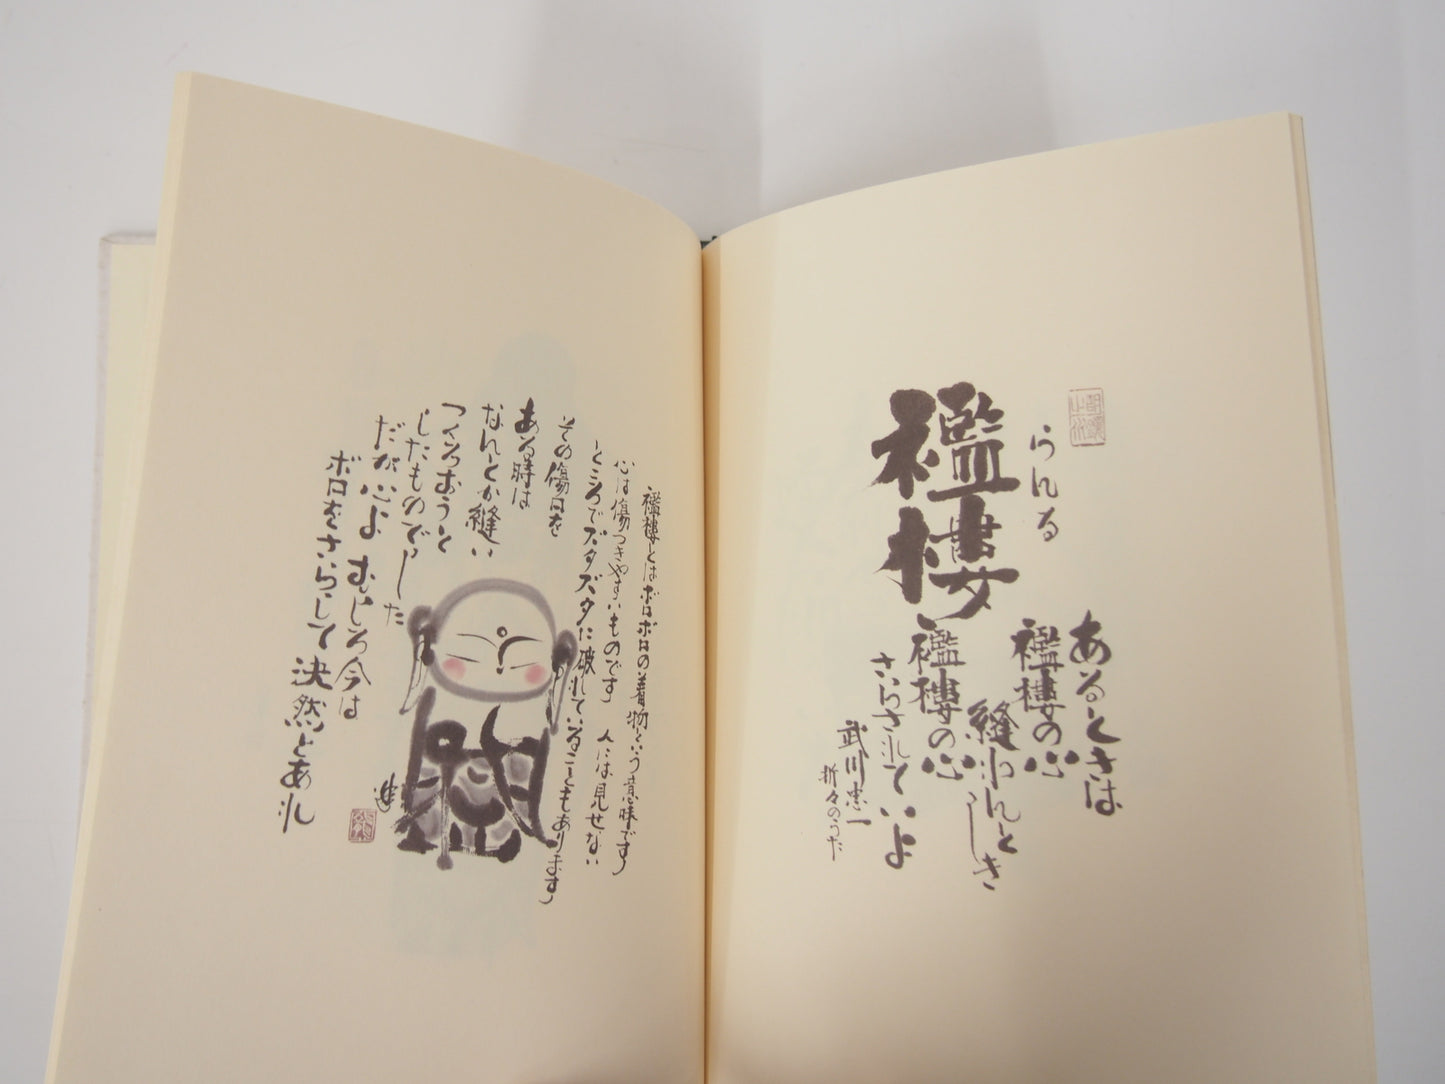 らんる
襤褸
あるときは
襤褸の心
縫わんとき
襤褸の心
さらされていよ
武川忠一
折々のうた
襤褸とはボロボロの着物という意味です
心は傷つきやすいものです 人には見せない
ところでズタズタに破れていることもあります
その傷口を
ある時は
なんとか縫い
つくろおうと
したものでした
だが心よ むしろ今は
ボロをさらして決然とあれ
進